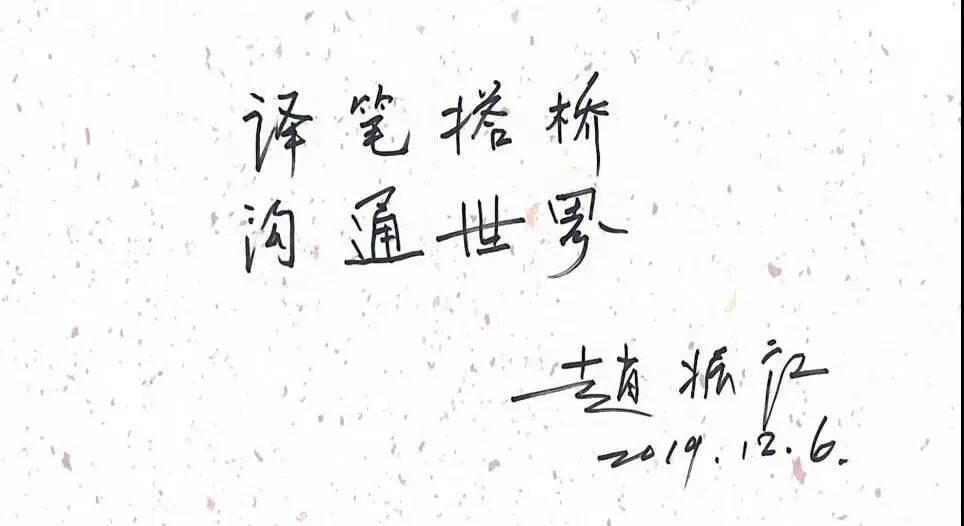 译笔搭桥
沟通世界
趙振江
2019.12.6.